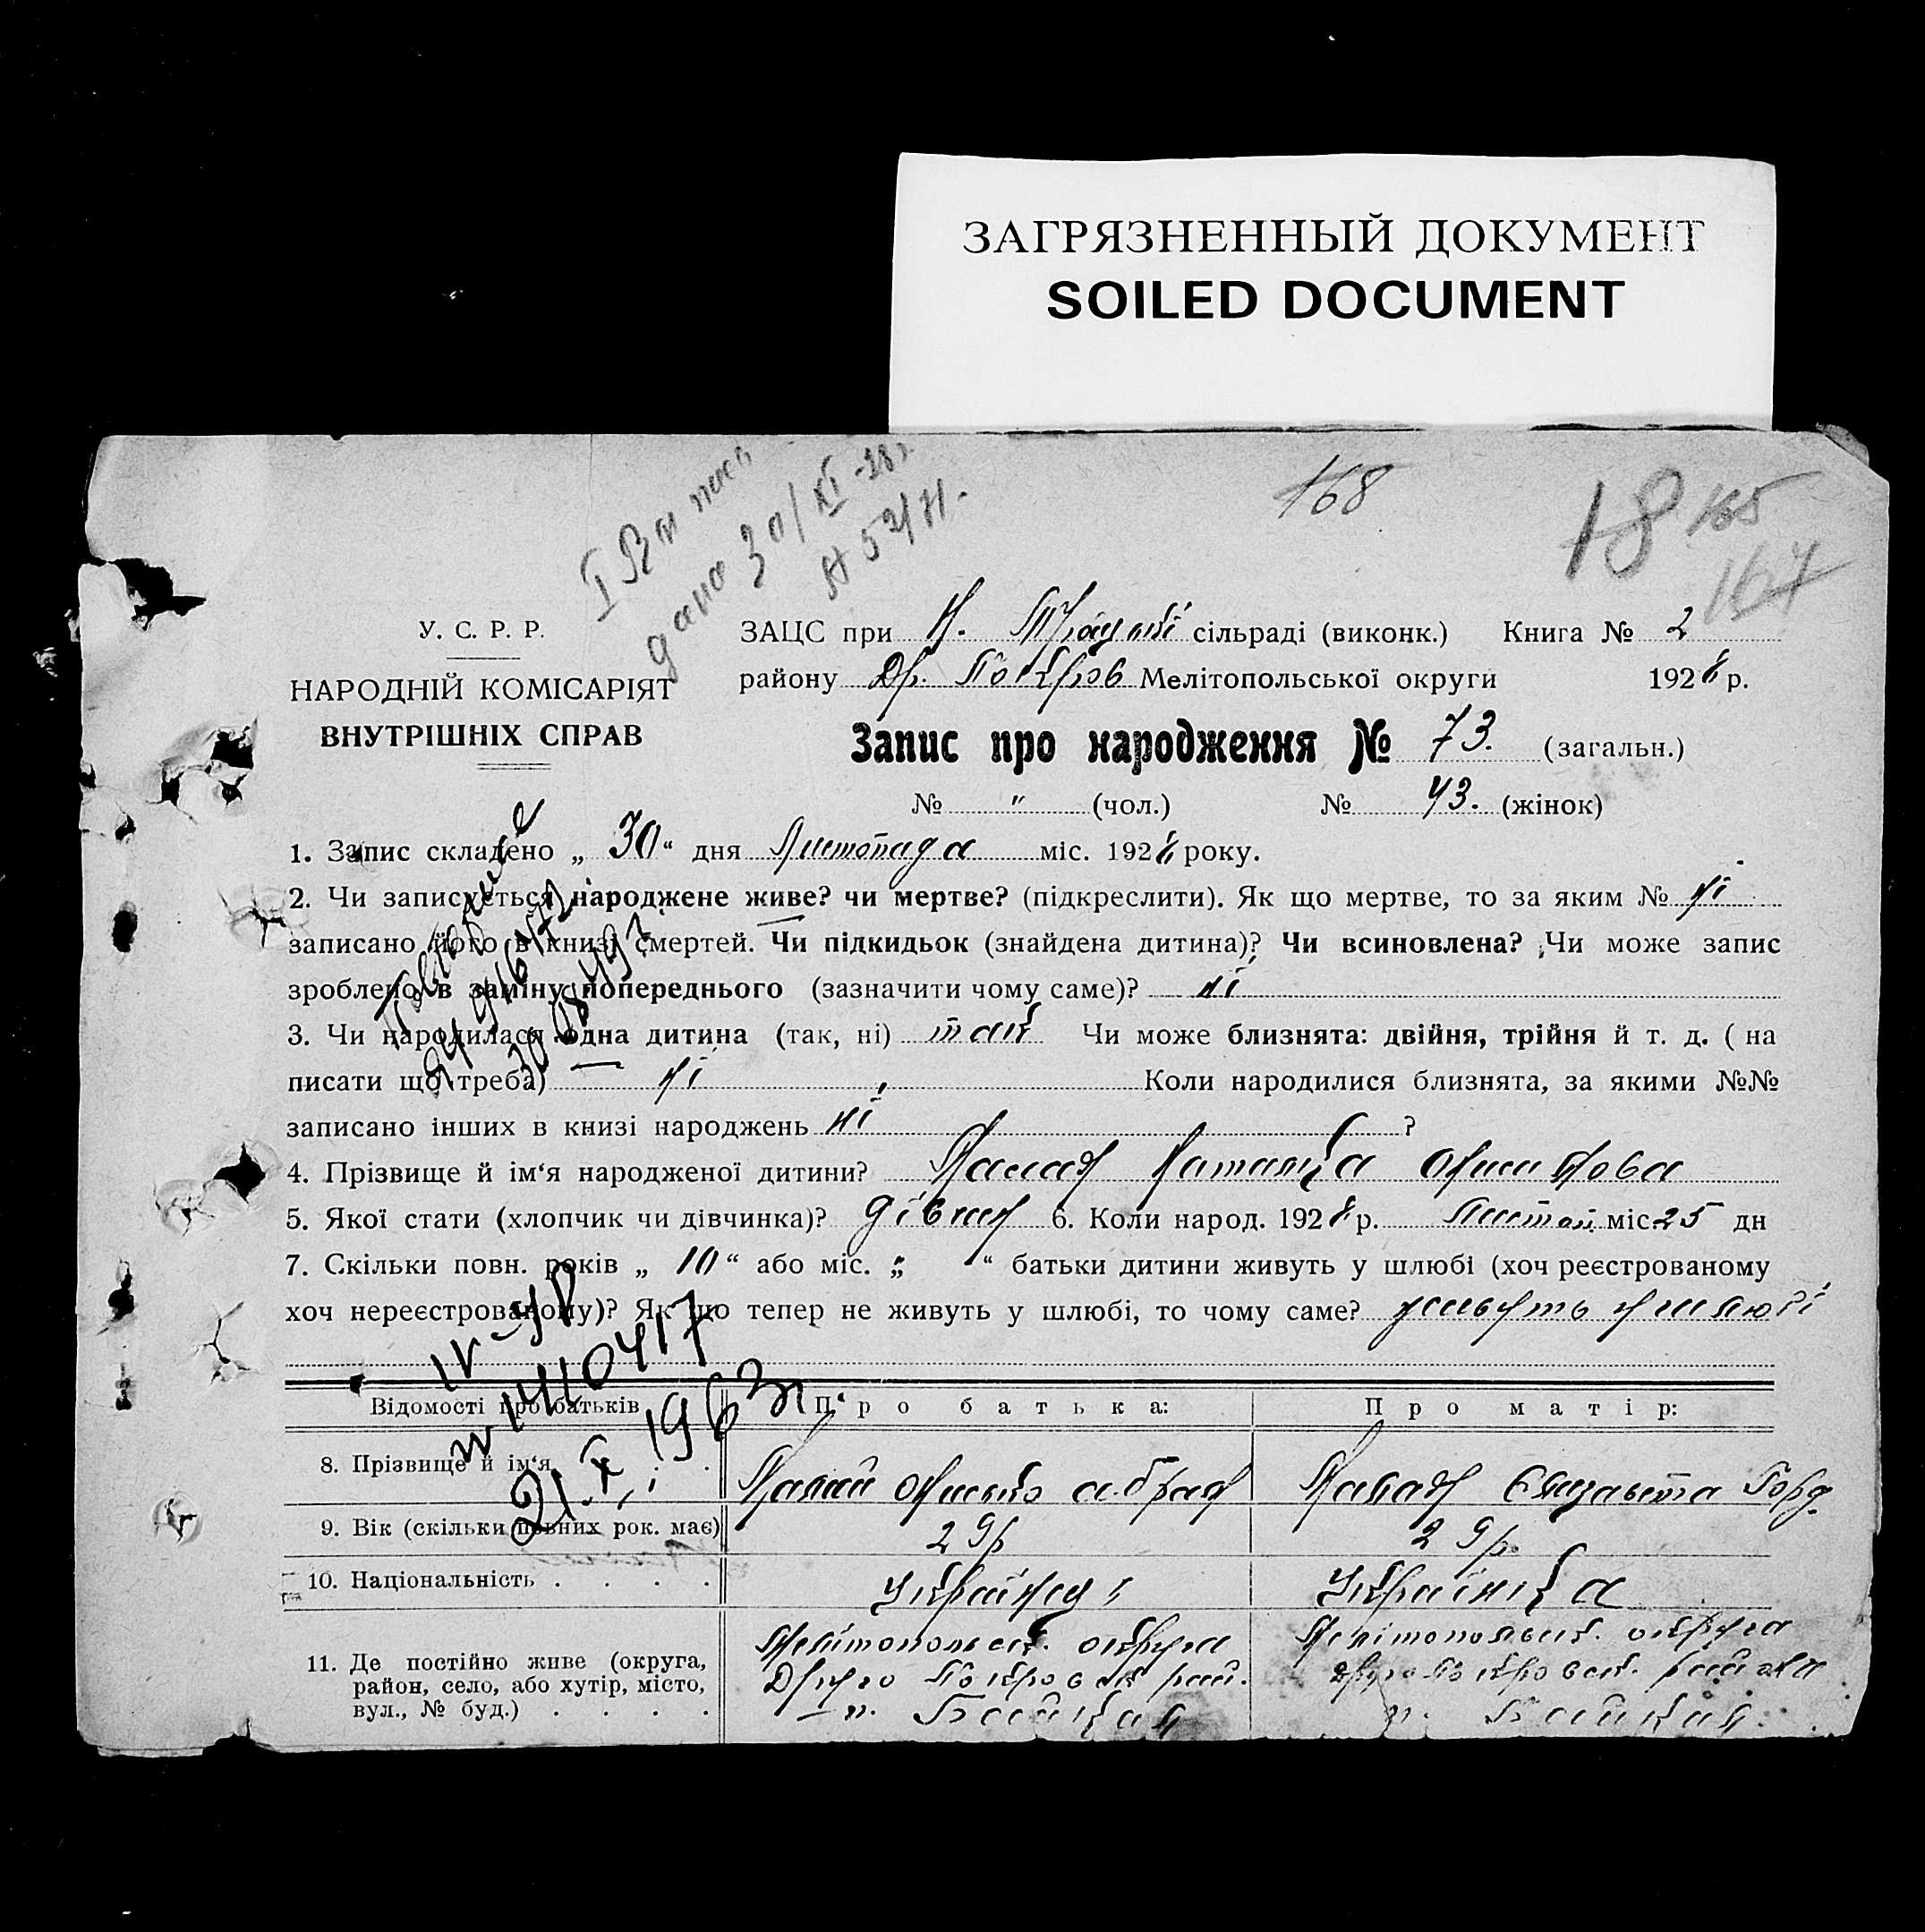 ЗАГРЯЗНЕННЫЙ ДОКУМЕНТ
SOILED DOCUMENT
168
18 165
167
дано 30/XI-28 г.
У. С. Р. Р.
НАРОДНІЙ КОМІСАРІЯТ
ВНУТРІШНІХ СПРАВ
ЗАЦС при Н. сільраді (виконк.) Книга № 2
району Др. Покров Мелітопольської округи 1928 р.
Запис про народження № 73. (загальн.)
№ " (чол.) № 43. (жінок)
1. Запис складено „ 30 “ дня Листопада міс. 1928 року.
2. Чи записується народжене живе? чи мертве? (підкреслити). Як що мертве, то за яким № ні
записано його в книзі смертей. Чи підкидьок (знайдена дитина)? Чи всиновлена? Чи може запис
зроблено в заміну попереднього (зазначити чому саме)? ні
3. Чи народилася одна дитина (так, ні) так Чи може близнята: двійня, трійня й т. д. ( на
писати що треба) ні Коли народилися близнята, за якими №№
записано інших в книзі народжень ні ?
4. Прізвище й ім‘я народженої дитини?
5. Якої стати (хлопчик чи дівчинка)? 6. Коли народ. 1928 р. Листоп. міс 25 дн
7. Скільки повн. років „ 10 “ або міс. „ “ батьки дитини живуть у шлюбі (хоч реєстрованому
хоч нереєстрованому)? Як що тепер не живуть у шлюбі, то чому саме? живуть у шлюбі
21.X.1963
Відомості про батьків Про батька: Про матір:
8. Прізвище й ім‘я Єлизавета Горд.
9. Вік (скільки повних рок. має) 29 р 29 р.
10. Національність . . . . Україніця
11. Де постійно живе (округа, район, село, або хутір, місто, вул., № буд.) . . . .
Мелітопольськ. округа Мелітопольськ. округа
Друго Покровськ рай. Друго Покровськ. района